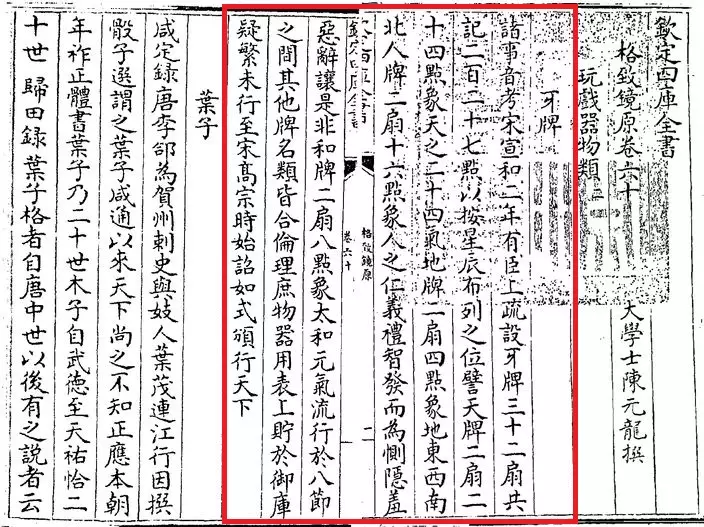 欽定四庫全書
格致鏡原卷六十
大學士陳元龍撰
玩戲器物類
牙牌
諸事音考宋宣和二年有臣上疏設牙牌三十二扇共
記二百二十七點以按星辰布列之位譬天牌二扇二
十四點象天之二十四氣地牌二扇四點象地東西南
北人牌二扇十六點象人之仁義禮智發而為惻隱羞
欽定四庫全書
格致鏡原
卷六十
二
惡辭讓是非和牌二扇八點象太和元氣流行於八節
之間其他牌名類皆合倫理庶物器用表上貯於御庫
疑繁未行至宋髙宗時始詔如式頒行天下
葉子
咸定録唐李郃為賀州刺史與妓人葉茂連江行因撰
骰子選謂之葉子咸通以來天下尚之不知正應本朝
年祚正體書葉子乃二十世木子自武德至天祐恰二
十世 歸田録葉子格者自唐中世以後有之説者云